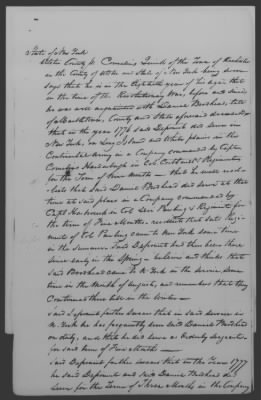 State of New York
Ulster County ss Cornelius Quick of the Town of Rochester
in the County of Ulster and State of New York being sworn
says that he is in the Eightieth year of his age that
in the time of the Revolutionary War, before and since
he was well acquainted with Daniel Brodhead, late
of Marbletown, County and State aforesaid deceased
that in the year 1776 said Deponent did serve in
New York, on Long Island and White plains in the
Continental Army in a Company commanded by Captain
Cornelius Hardenbergh in Col Regiment
for the Term of Months that he well recol-
lects that said Daniel Brodhead did serve at that
time at said place in a Company commanded by
Capt Hasbrouck in Col Levi Pawling's Regiment for
the term of Nine Months - recollects that said Regi-
ment of Col Pawling came to New York some time
in the Summer. Said Deponent had then been there
since early in the Spring - believes and thinks that
said Brodhead came to N. York in the service some
time in the Month of August, and remembers that they
Continued there till in the Winter -
said Deponent further swears that in said service in
N. York he has frequently seen said Daniel Brodhead
on duty, and that he did serve as Orderly Sergeant
for said term of Months -
Said Deponent further swears that in the Year 1777
he said Deponent and said Daniel Brodhead did
serve for the Term of Three Months in the Company